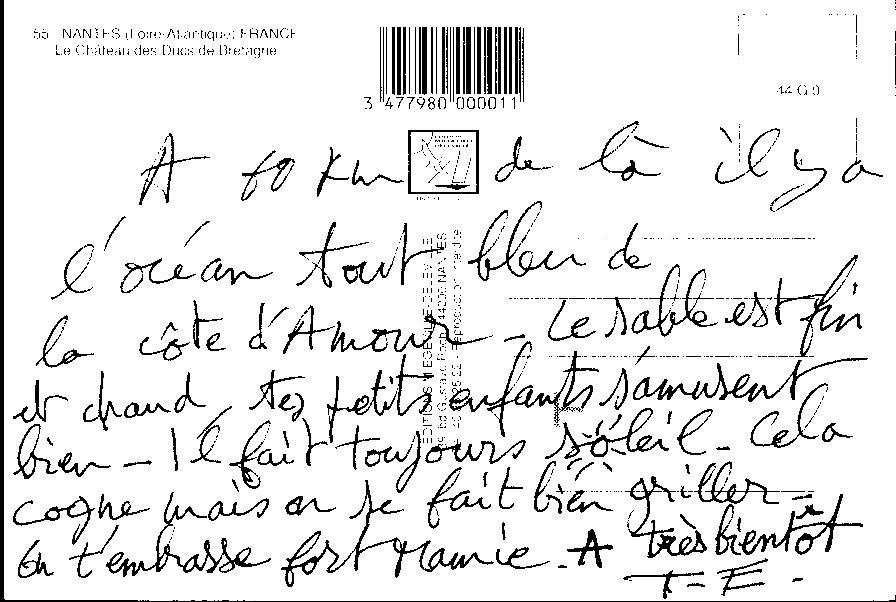 55 NANTES (Loire-Atlantique) FRANCE
Le Château des Ducs de Bretagne
3 477980 000011
44 G 9
A 60 Km de là il y a
l'océan tout bleu de
la côte d'Amour - Le sable est fin
et chaud tes petits enfants s'amusent
bien - Il fait toujours soleil - Cela
cogne mais on se fait bien griller -
On t'embrasse fort Mamie. A très bientôt
T-E -